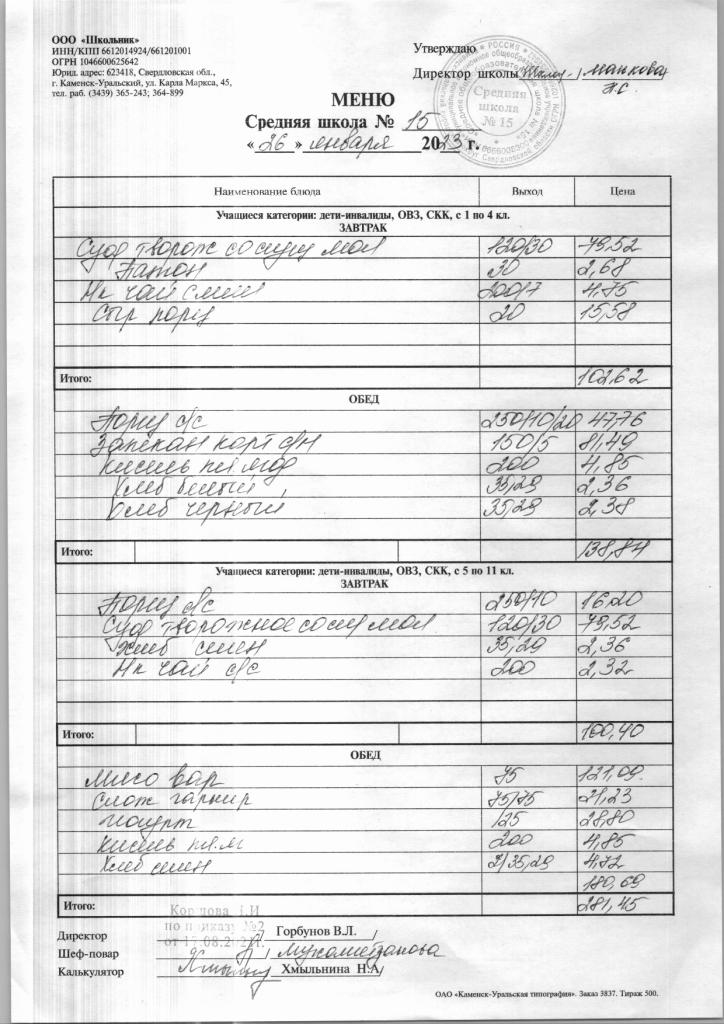 ООО «Школьник»
ИНН/КПП 6612014924/661201001
ОГРН 1046600625642
Юрид. адрес: 623418, Свердловская обл.,
г. Каменск-Уральский, ул. Карла Маркса, 45,
тел. раб. (3439) 365-243; 364-899
Утверждаю
Директор школы
РОССИЯ
Средняя школа № 15
МЕНЮ
Средняя школа № 15
«26» января 2023 г.
Наименование блюда Выход Цена
Учащиеся категории: дети-инвалиды, ОВЗ, СКК, с 1 по 4 кл.
ЗАВТРАК
Суф творож со сгущ мол 120/30 79,52
Батон 30 2,68
Нк чай слим 200/7 4,75
Сыр порц 20 15,58
Итого: 102,62
ОБЕД
250/10/20 47,76
Запекан карт с/м 150/5 81,49
Кисель пл яго 200 4,85
Хлеб белый 35,29 2,36
Хлеб черный 35,29 2,38
Итого: 138,84
Учащиеся категории: дети-инвалиды, ОВЗ, СКК, с 5 по 11 кл.
ЗАВТРАК
250/10 16,20
Суф творожное со сгущ мол 120/30 79,52
Хлеб пшен 35,29 2,36
Нк чай с/с 200 2,32
Итого: 100,40
ОБЕД
Мясо вар 75 121,09
Слож гарнир 75/75 21,23
Йогурт 125 28,80
Кисель пл.яг 200 4,85
Хлеб пшен 2/35,29 4,72
180,69
Итого: 281,45
по приказу №2
Директор Горбунов В.Л.
Шеф-повар
Калькулятор Хмыльнина Н.А
ОАО «Каменск-Уральская типография». Заказ 3837. Тираж 500.